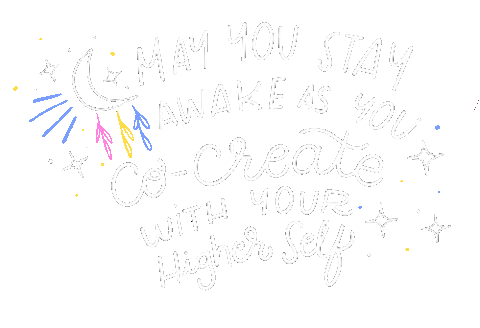 MAY YOU STAY
AWAKE AS YOU
Co-create
WITH YOUR
Higher Self